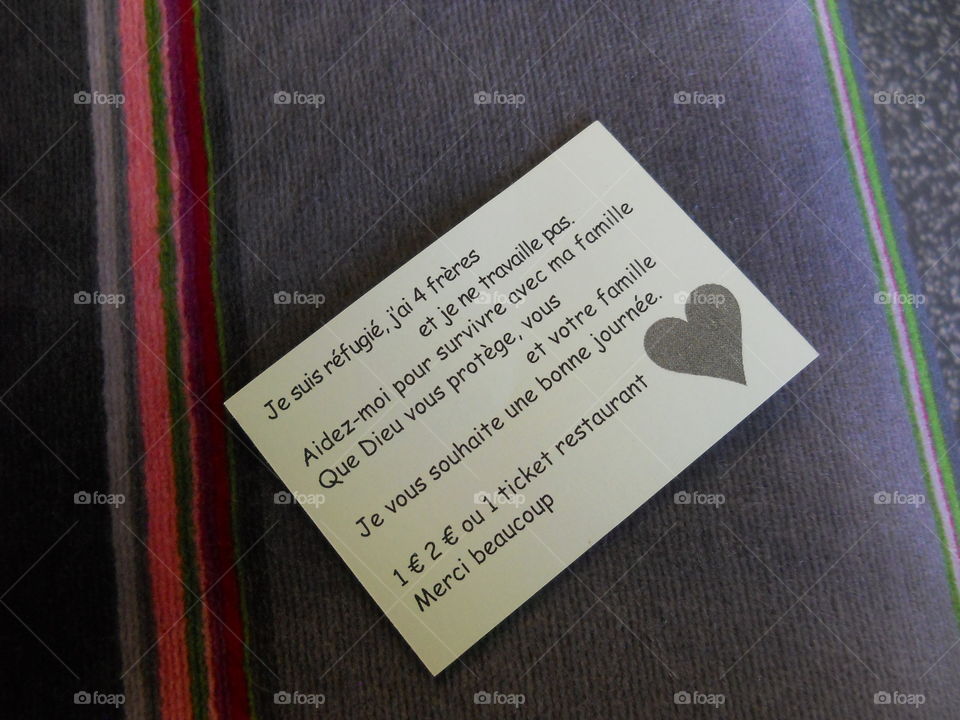 Je suis réfugié, j'ai 4 frères
et je ne travaille pas.
Aidez-moi pour survivre avec ma famille
Que Dieu vous protège, vous
et votre famille
Je vous souhaite une bonne journée.
1 € 2 € ou 1 ticket restaurant
Merci beaucoup
foap foap foap foap foap
foap foap foap foap foap
foap foap foap foap foap
foap foap foap foap foap